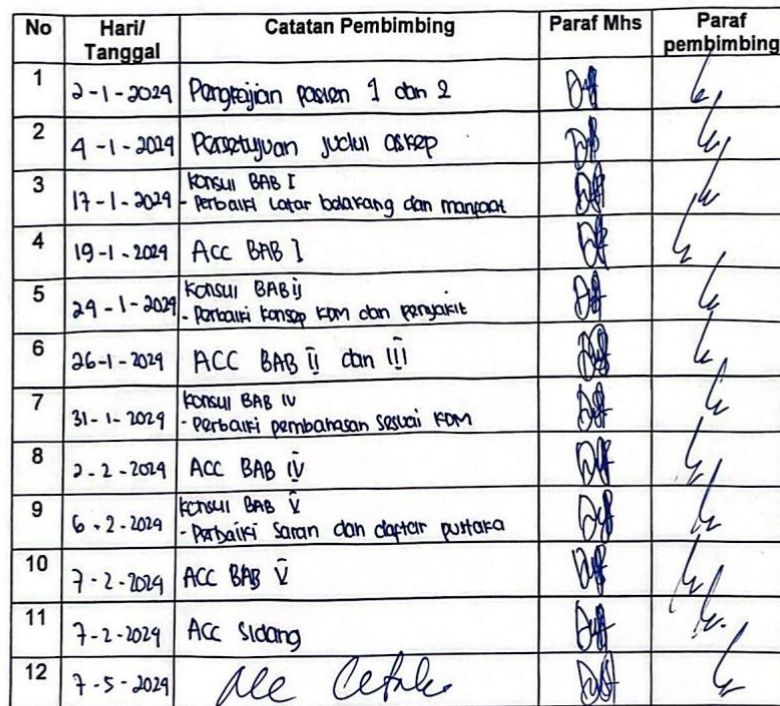 No Hari/ Tanggal Catatan Pembimbing Paraf Mhs Paraf pembimbing
1 2-1-2024 Pengkajian pasien 1 dan 2
2 4-1-2024 Persetujuan judul askep
3 17-1-2024 Konsul BAB I
- Perbaiki Latar belakang dan manfaat
4 19-1-2024 ACC BAB I
5 24-1-2024 Konsul BAB II
- Perbaiki Konsep KDM dan penyakit
6 26-1-2024 ACC BAB II dan III
7 31-1-2024 Konsul BAB IV
- Perbaiki pembahasan sesuai KDM
8 2-2-2024 ACC BAB IV
9 6-2-2024 Konsul BAB V
- Perbaiki Saran dan daftar pustaka
10 7-2-2024 ACC BAB V
11 7-2-2024 ACC Sidang
12 7-5-2024 Acc Cetak